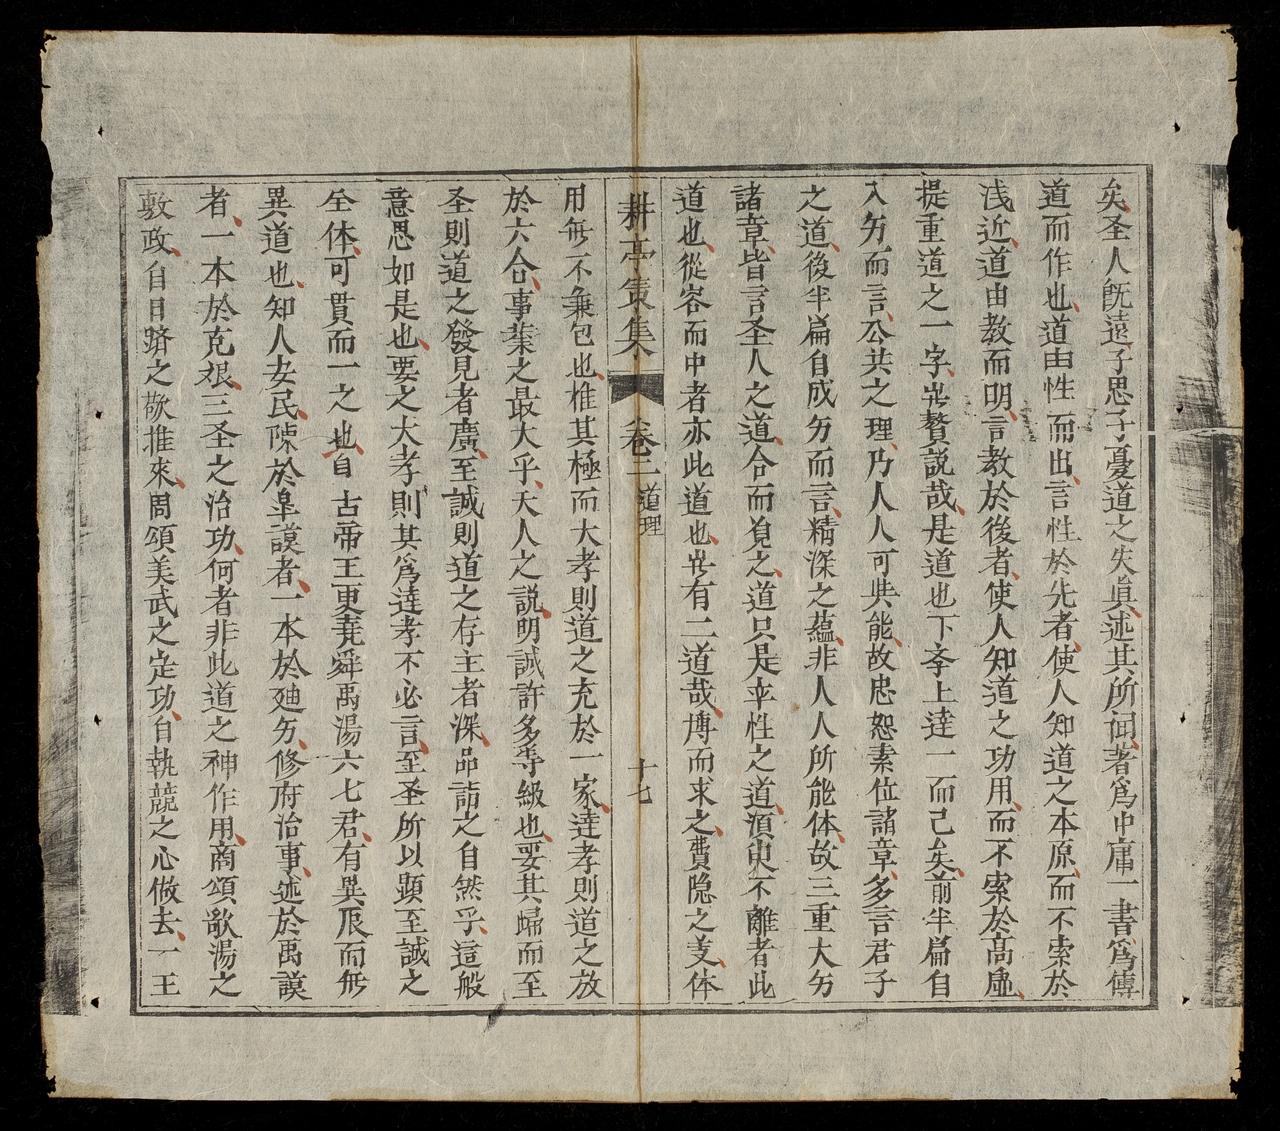 矣圣人旣遠子思子憂道之失眞述其所闻著爲中庸一書爲傳
道而作也道由性而出言性於先者使人知道之本原而不索於
浅近道由教而明言教於後者使人知道之功用而不索於高虛
提重道之一字岂贅説哉是道也下斈上達一而已矣前半扁自
入分而言公共之理乃人人可與能故忠恕素位諸章多言君子
之道後半扁自成分而言精深之蕴非人人所能体故三重大分
諸章皆言圣人之道合而覌之道只是率性之道湏臾不離者此
道也從容而中者亦此道也岂有二道哉博而求之費隐之芰体
耕亭策集 卷二 道理 十七
用無不兼包也惟其極而大孝則道之充於一家達孝則道之放
於六合事業之最大乎天人之説明誠許多等級也要其歸而至
圣則道之發見者廣至誠則道之存主者深品節之自然乎這般
意思如是也要之大孝則其爲達孝不必言至圣所以顕至誠之
全体可貫而一之也自古帝王更堯舜禹湯六七君有異辰而無
異道也知人安民陳於皐謨者一本於廸分修府治事述於禹謨
者一本於克艰三圣之治功何者非此道之神作用商頌歌湯之
敷政自日躋之敬推來周頌美武之定功自執競之心做去一王